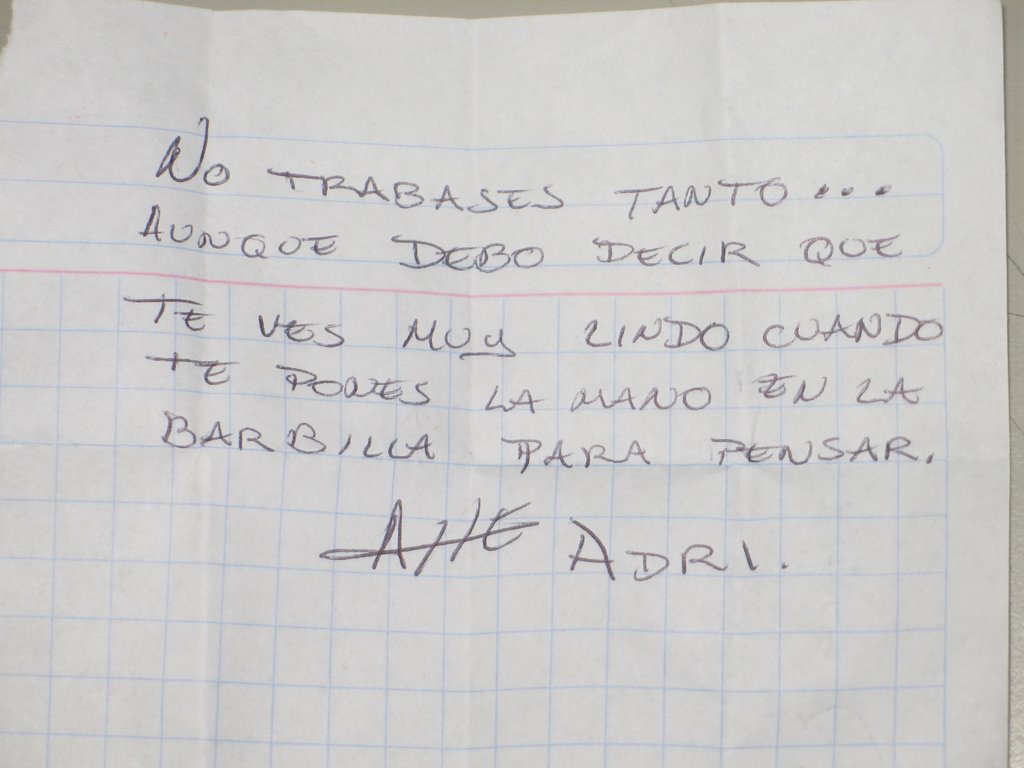 No TRABAJES TANTO...
AUNQUE DEBO DECIR QUE
TE VES MUY LINDO CUANDO
TE PONES LA MANO EN LA
BARBILLA PARA PENSAR.
ATTE ADRI.